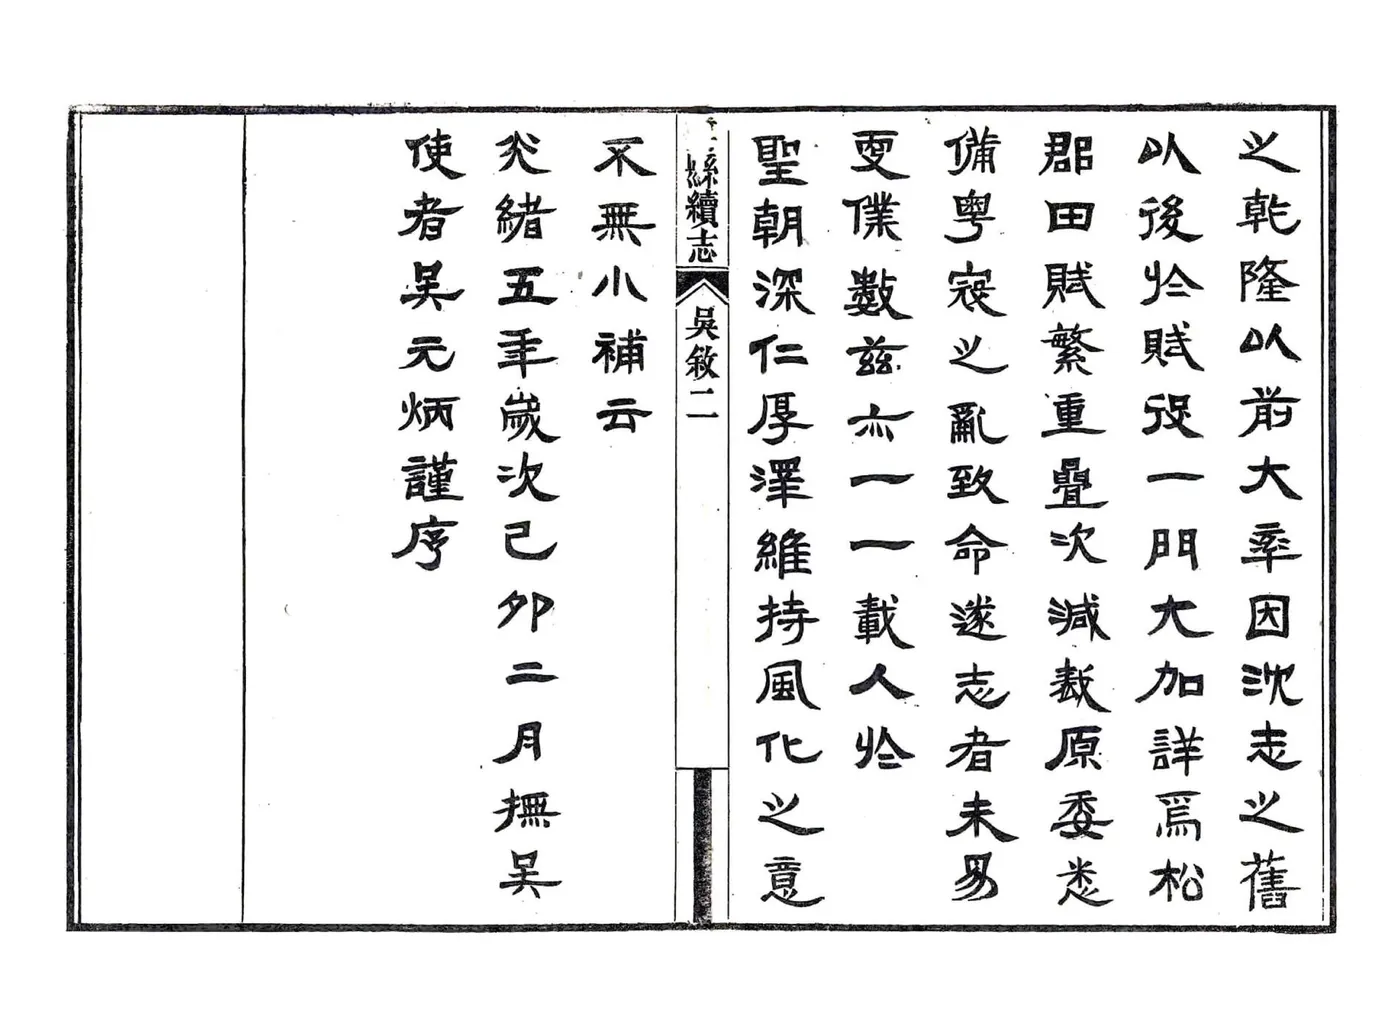 之乾隆以前大率因沈志之舊
以後於賦役一門尤加詳焉松
郡田賦繁重疊次減裁原委悉
備粵寇之亂致命遂志者未易
更僕數兹亦一一載入於
聖朝深仁厚澤維持風化之意
縣續志
吳敘二
不無小補云
光緒五年歲次己卯二月撫吳
使者吳元炳謹序